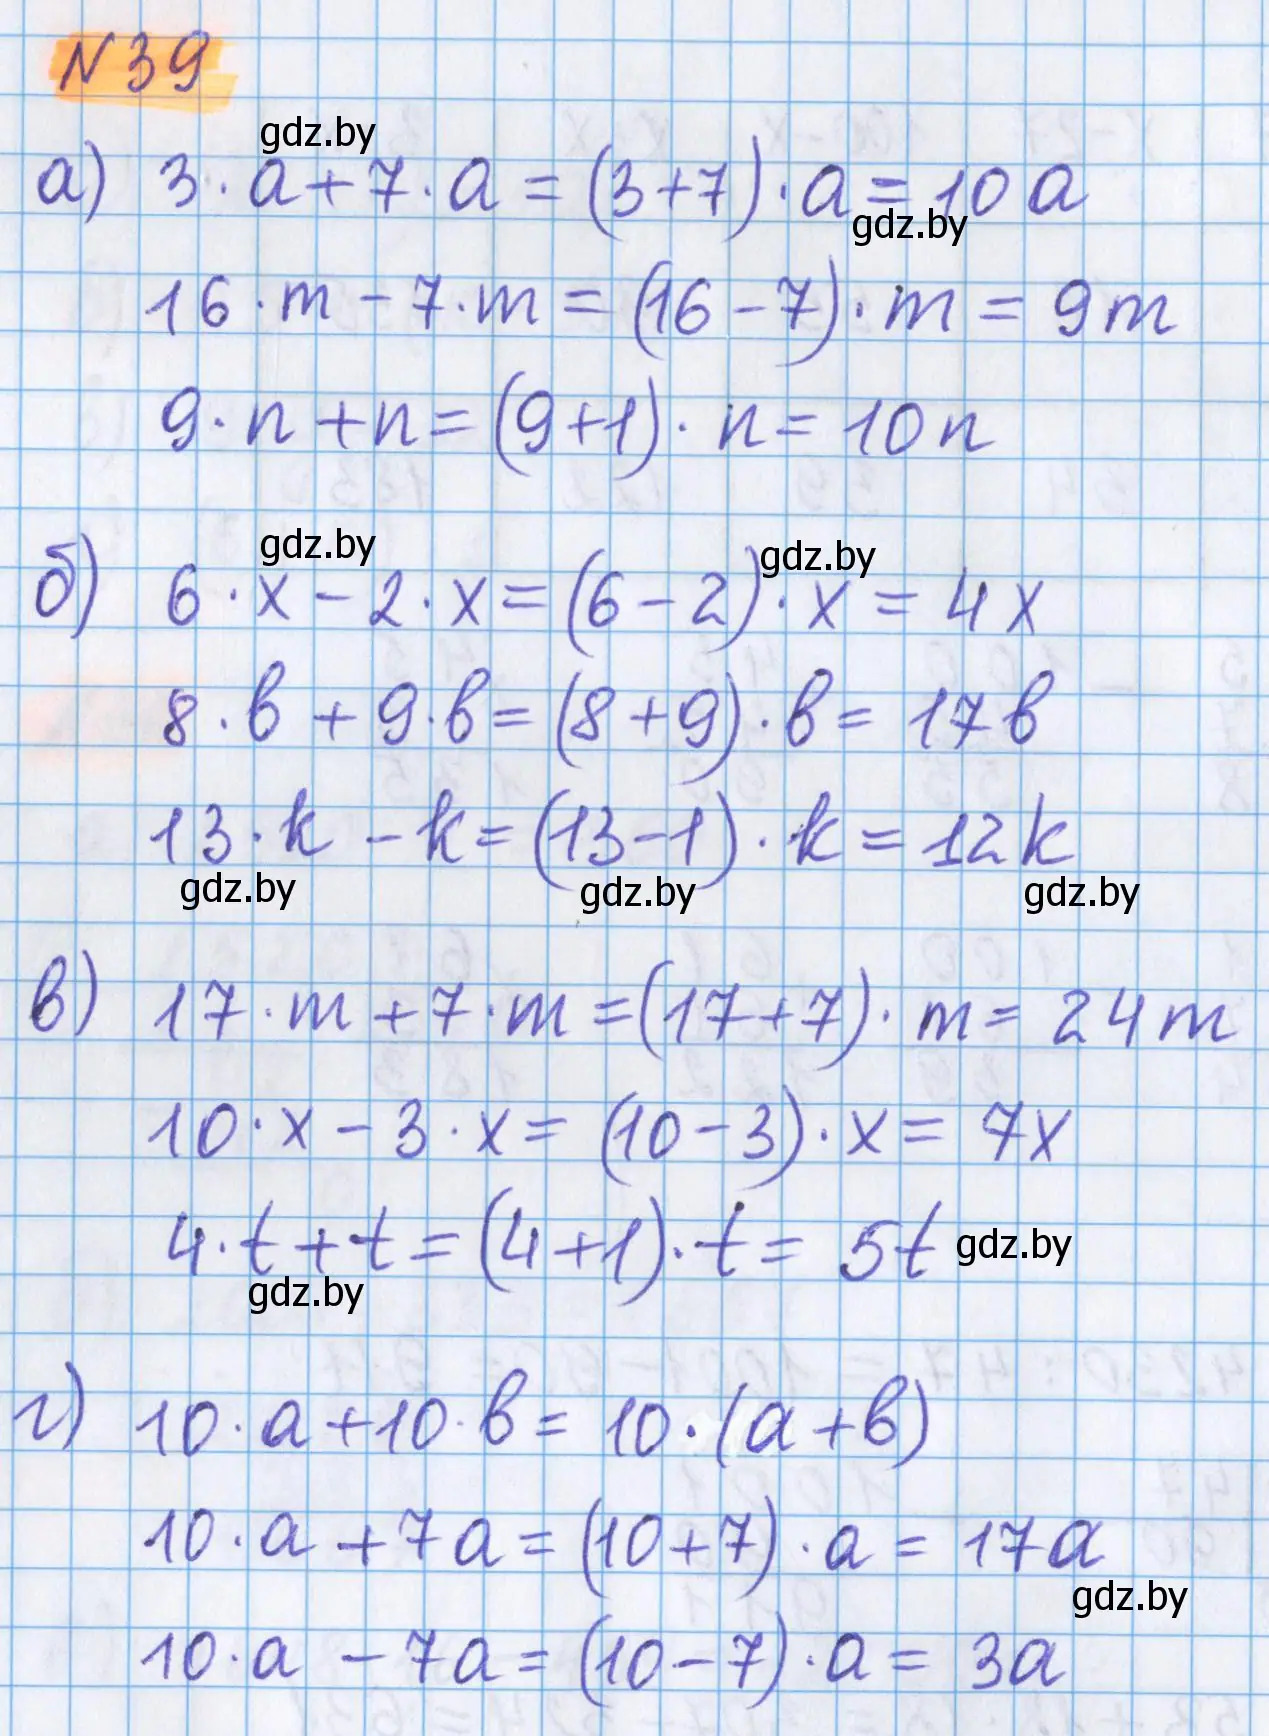 N 39
gdz.by
а) 3 · a + 7 · a = (3+7) · a = 10 a
gdz.by
16 · m − 7 · m = (16 − 7) · m = 9m
9 · n + n = (9+1) · n = 10n
gdz.by
gdz.by
б) 6 · x − 2 · x = (6 − 2) · x = 4x
8 · b + 9 · b = (8 + 9) · b = 17b
13 · k − k = (13 − 1) · k = 12k
gdz.by gdz.by gdz.by
в) 17 · m + 7 · m = (17 + 7) · m = 24m
10 · x − 3 · x = (10 − 3) · x = 7x
4 · t + t = (4 + 1) · t = 5t gdz.by
gdz.by
г) 10 · a + 10 · b = 10 · (a + b)
10 · a + 7a = (10 + 7) · a = 17a
gdz.by
10 · a − 7a = (10 − 7) · a = 3a